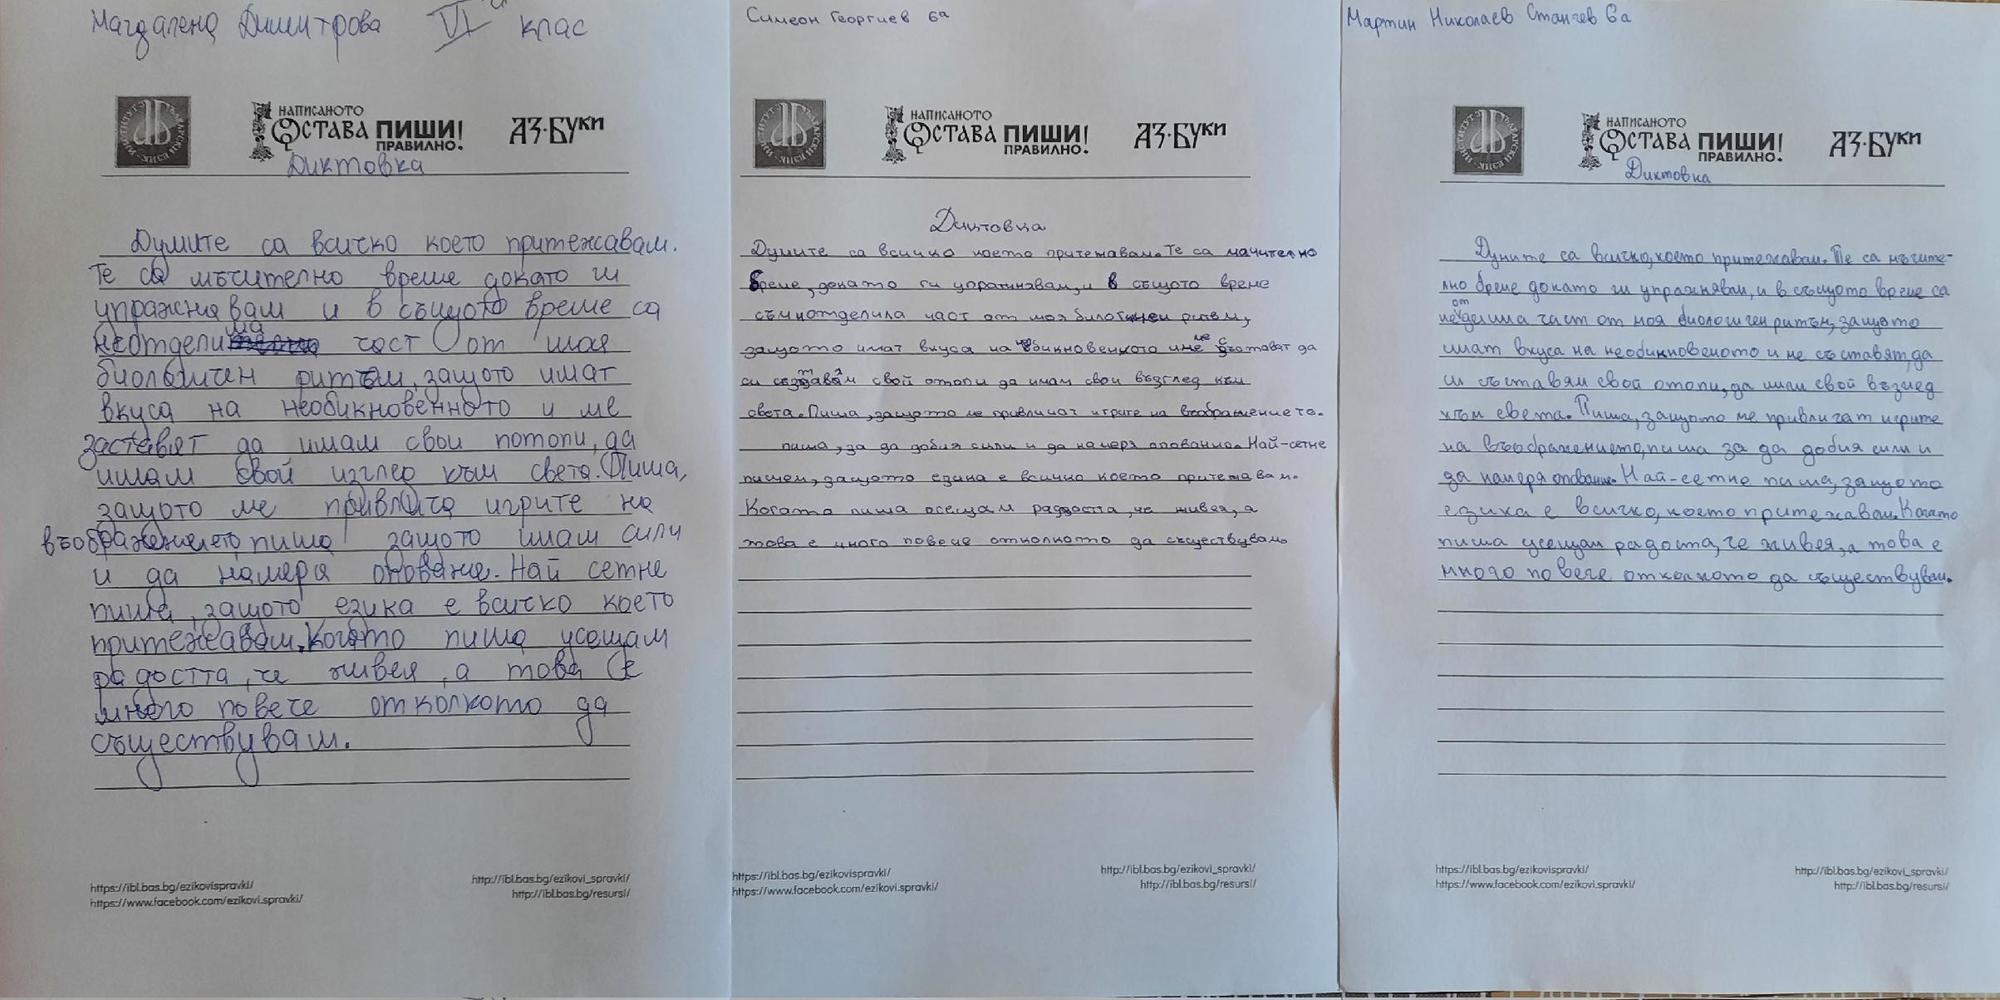 Магдалена Димитрова VI а клас
НАПИСАНОТО
ОСТАВА ПИШИ!
ПРАВИЛНО!
АЗ·БУКИ
Диктовка
Думите са всичко което притежавам.
Те са мъчително време докато ги
упражнявам и в същото време са
неотделима част от моя
биологичен ритъм, защото имат
вкуса на необикновенното и ме
заставят да имам свои потопи, да
имам свой изглед към света. Пиша,
защото ме привлича игрите на
въображението, пиша защото имам сили
и да намеря опование. Най сетне
пиша, защото езика е всичко което
притежавам. Когато пиша усещам
радостта, че живея, а това е
много повече отколкото да
съществувам.
https://ibl.bas.bg/ezikovispravki/
https://www.facebook.com/ezikovi.spravki/
http://ibl.bas.bg/ezikovi_spravki/
http://ibl.bas.bg/resursi/
Симеон Георгиев 6а
НАПИСАНОТО
ОСТАВА ПИШИ!
ПРАВИЛНО!
АЗ·БУКИ
Диктовка
Думите са всичко което притежавам. Те са мачително
време, докато ги упражнявам, и в същото време
част от моя ритъм,
защото имат вкуса на да
си свой отопи да имам свои възглед към
света. Пиша, защото ме привличат игрите на въображението.
пиша, за да добия сили и да намеря опование. Най-сетне
пишем, защото езика е всичко което притежавам.
Когато пиша осещам радоста, че живея, а
това е много повече отколкото да съществувам.
https://ibl.bas.bg/ezikovispravki/
https://www.facebook.com/ezikovi.spravki/
http://ibl.bas.bg/ezikovi_spravki/
http://ibl.bas.bg/resursi/
Мартин Николаев Станчев 6а
НАПИСАНОТО
ОСТАВА ПИШИ!
ПРАВИЛНО!
АЗ·БУКИ
Диктовка
Думите са всичко, което притежавам. Те са мъчите-
лно време докато ги упражнявам, и в същото време са
неотделима част от моя биологичен ритъм, защото
имат вкуса на необикновеното и ме съставят, да
си съставям свой отопи, да имам свой възглед
към света. Пиша, защото ме привличат игрите
на въображението, пиша за да добия сили и
да намеря опование. Най-сетне пиша, защото
езика е всичко, което притежавам. Когато
пиша усещам радоста, че живея, а това е
много повече отколкото да съществувам.
https://ibl.bas.bg/ezikovispravki/
https://www.facebook.com/ezikovi.spravki/
http://ibl.bas.bg/ezikovi_spravki/
http://ibl.bas.bg/resursi/